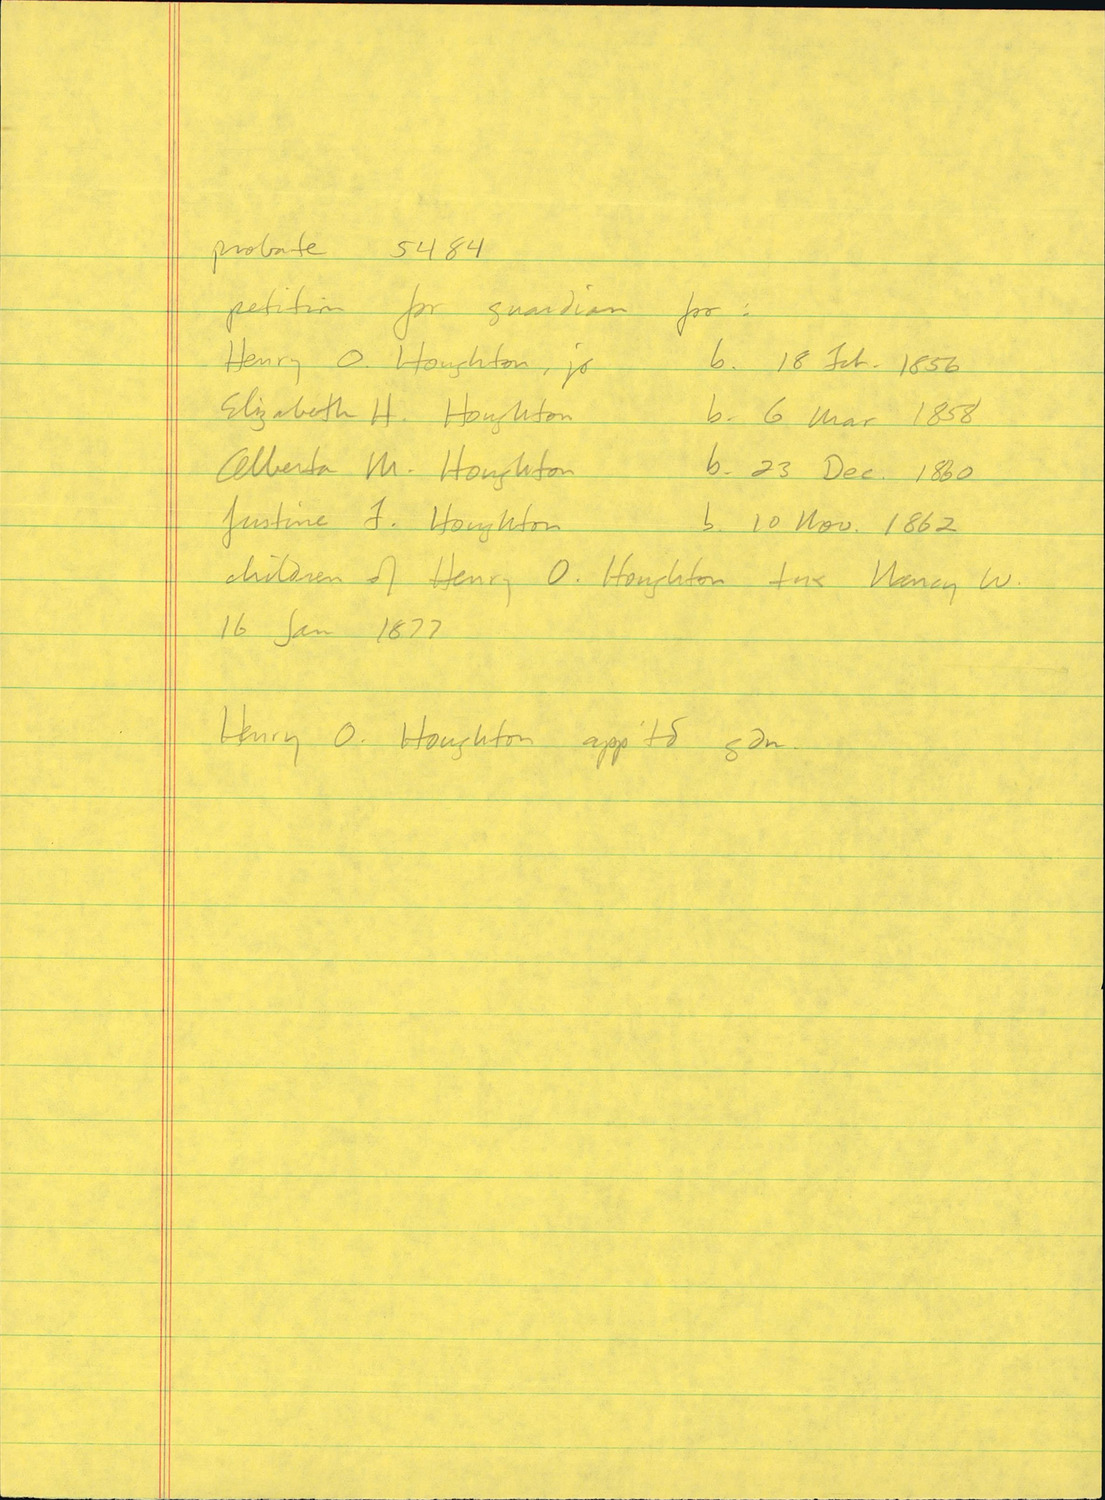 probate 5484
petition for guardian for:
Henry O. Houghton, jr b. 18 Feb. 1856
Elizabeth H. Houghton b. 6 Mar 1858
Alberta M. Houghton b. 23 Dec. 1860
Justine F. Houghton b. 10 Nov. 1862
children of Henry O. Houghton + ux Nancy W.
16 Jan 1877
Henry O. Houghton app'td gdn.